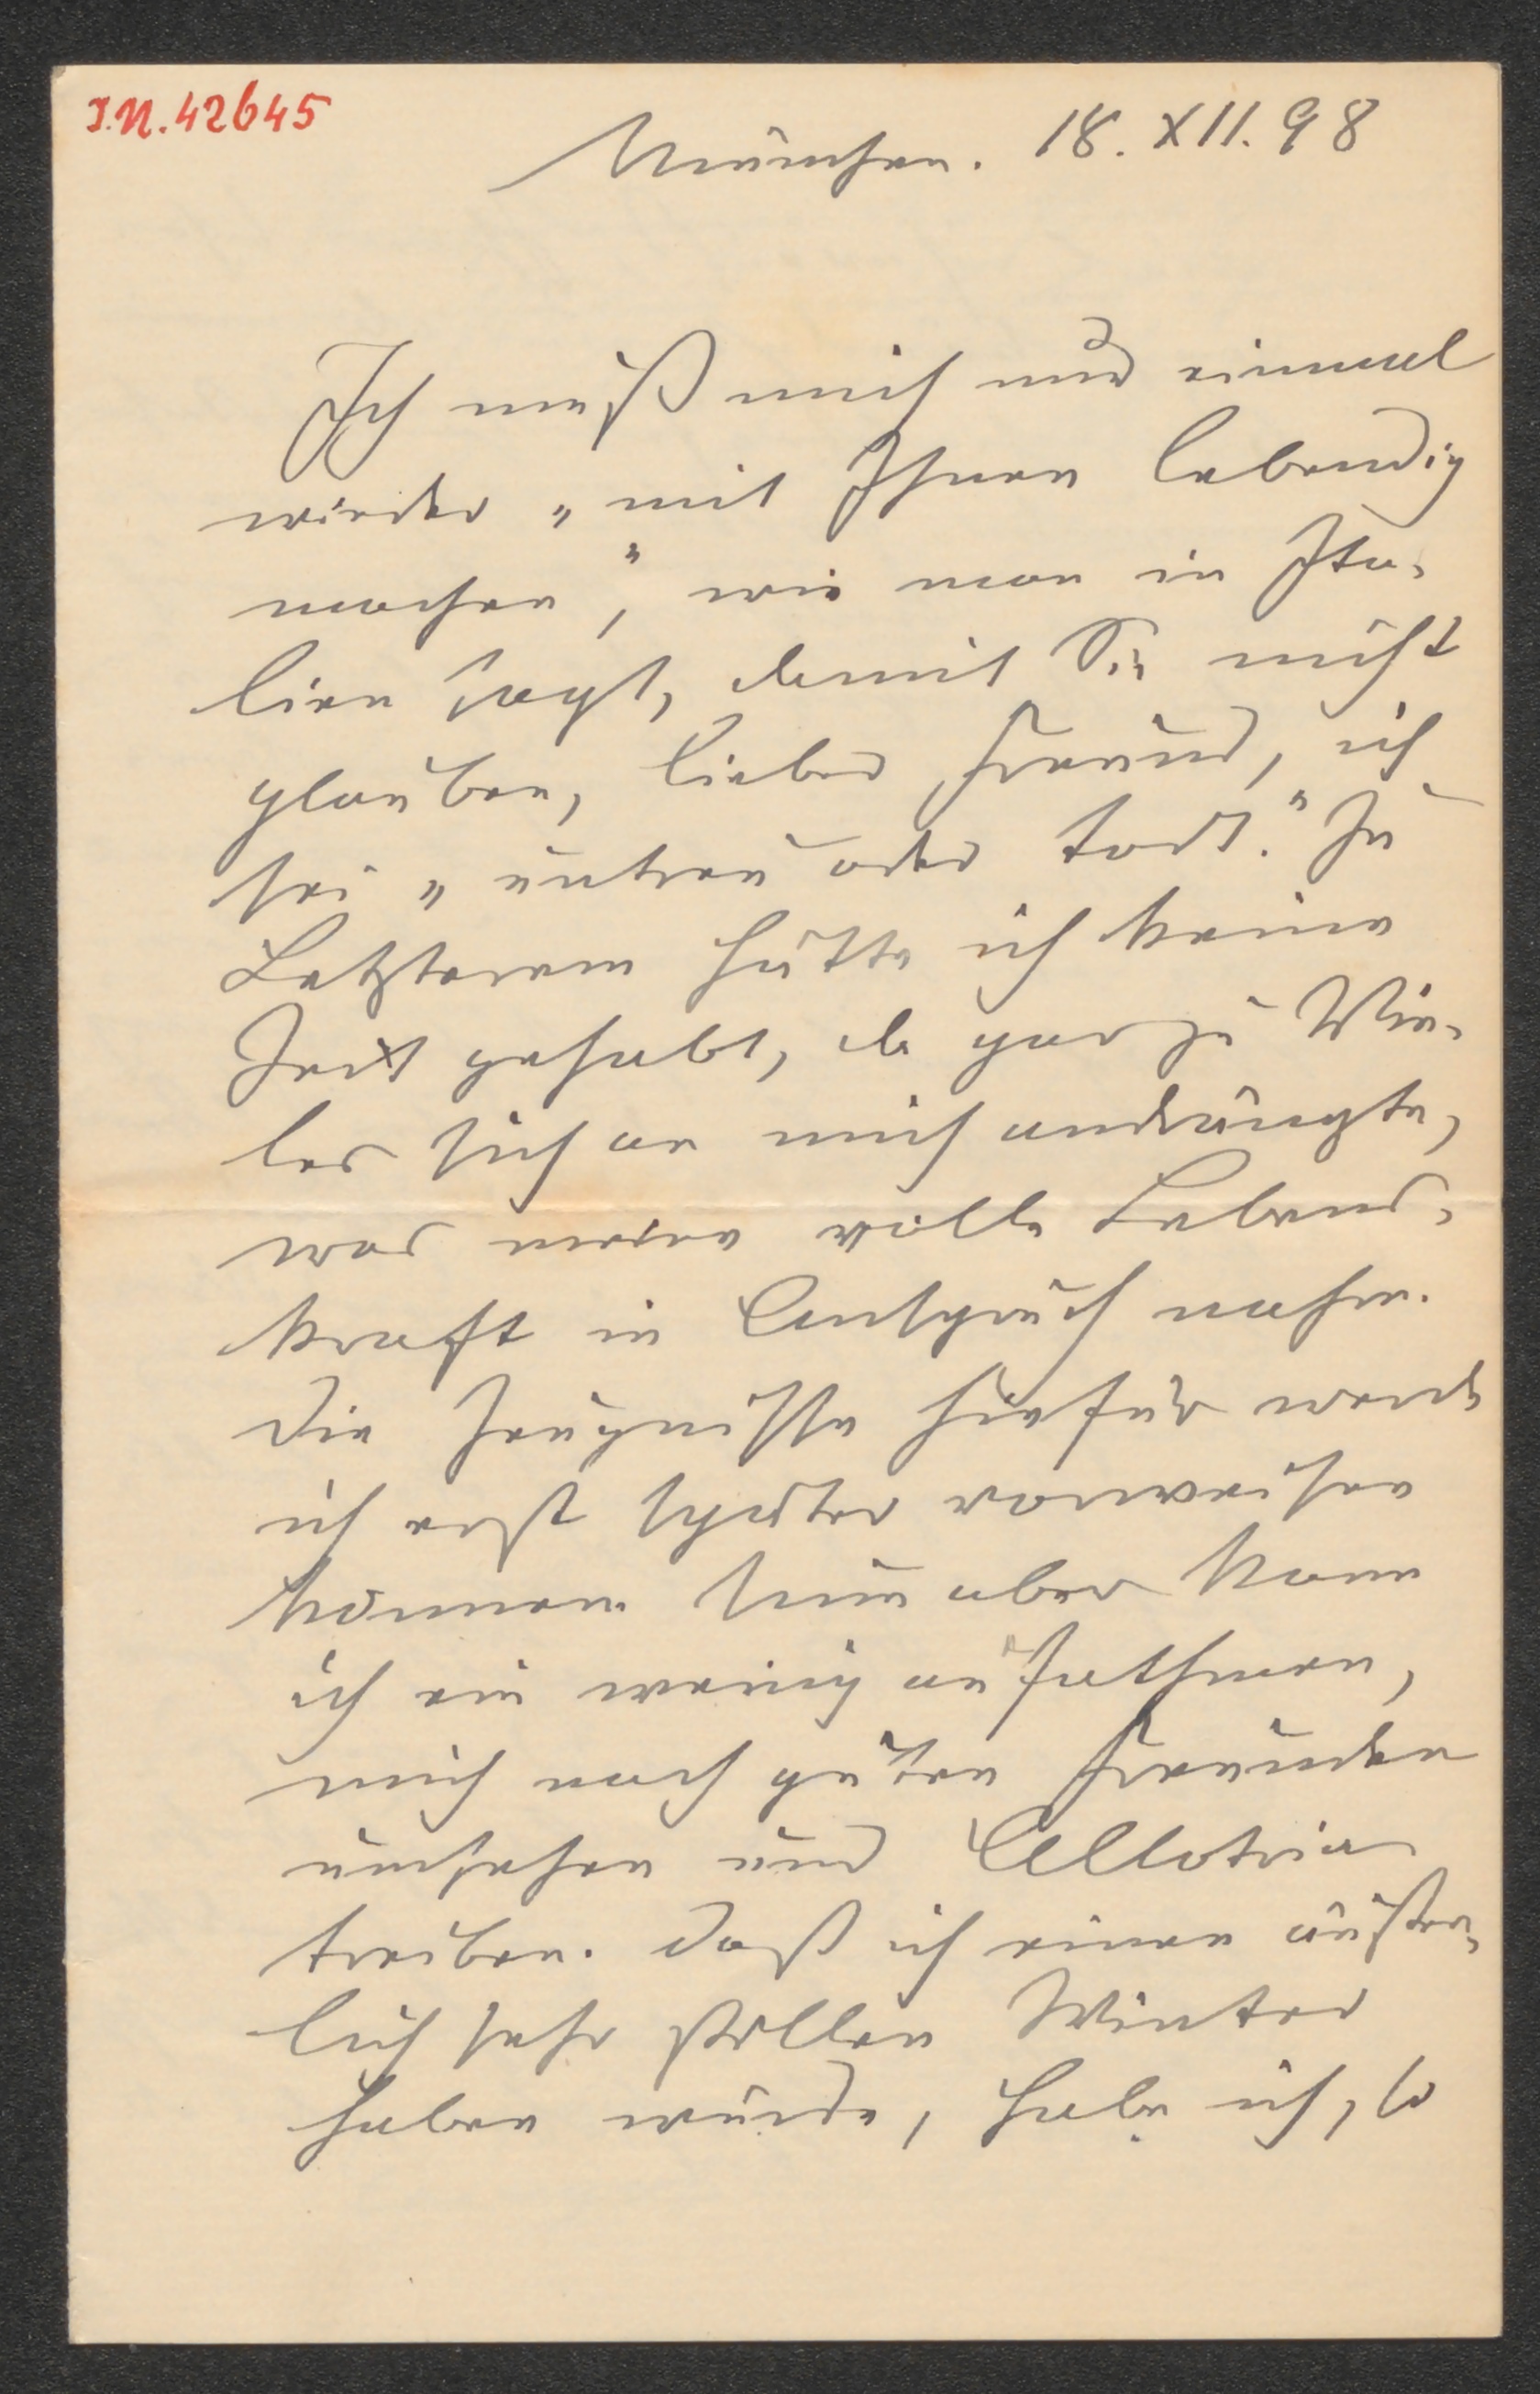 I.N. 42645
München. 18. XII. 98
Ich muß mich nur einmal
wieder „mit Ihnen lebendig
machen“, wie man in Ita-
lien sagt, damit Sie nicht
glauben, lieber Freund, ich
sei „untreu oder todt.“ Zu
Letzterem hätte ich keine
Zeit gehabt, da gar zu Vie-
les sich an mich andrängte,
was meine volle Lebens-
kraft in Anspruch nahm.
Die Zeugnisse hiefür werde
ich erst später vorweisen
können. Nun aber kann
ich ein wenig aufathmen,
mich nach guten Freunden
umsehen und Allotria
treiben. Daß ich einen äußer-
lich sehr stillen Winter
haben würde, habe ich, so